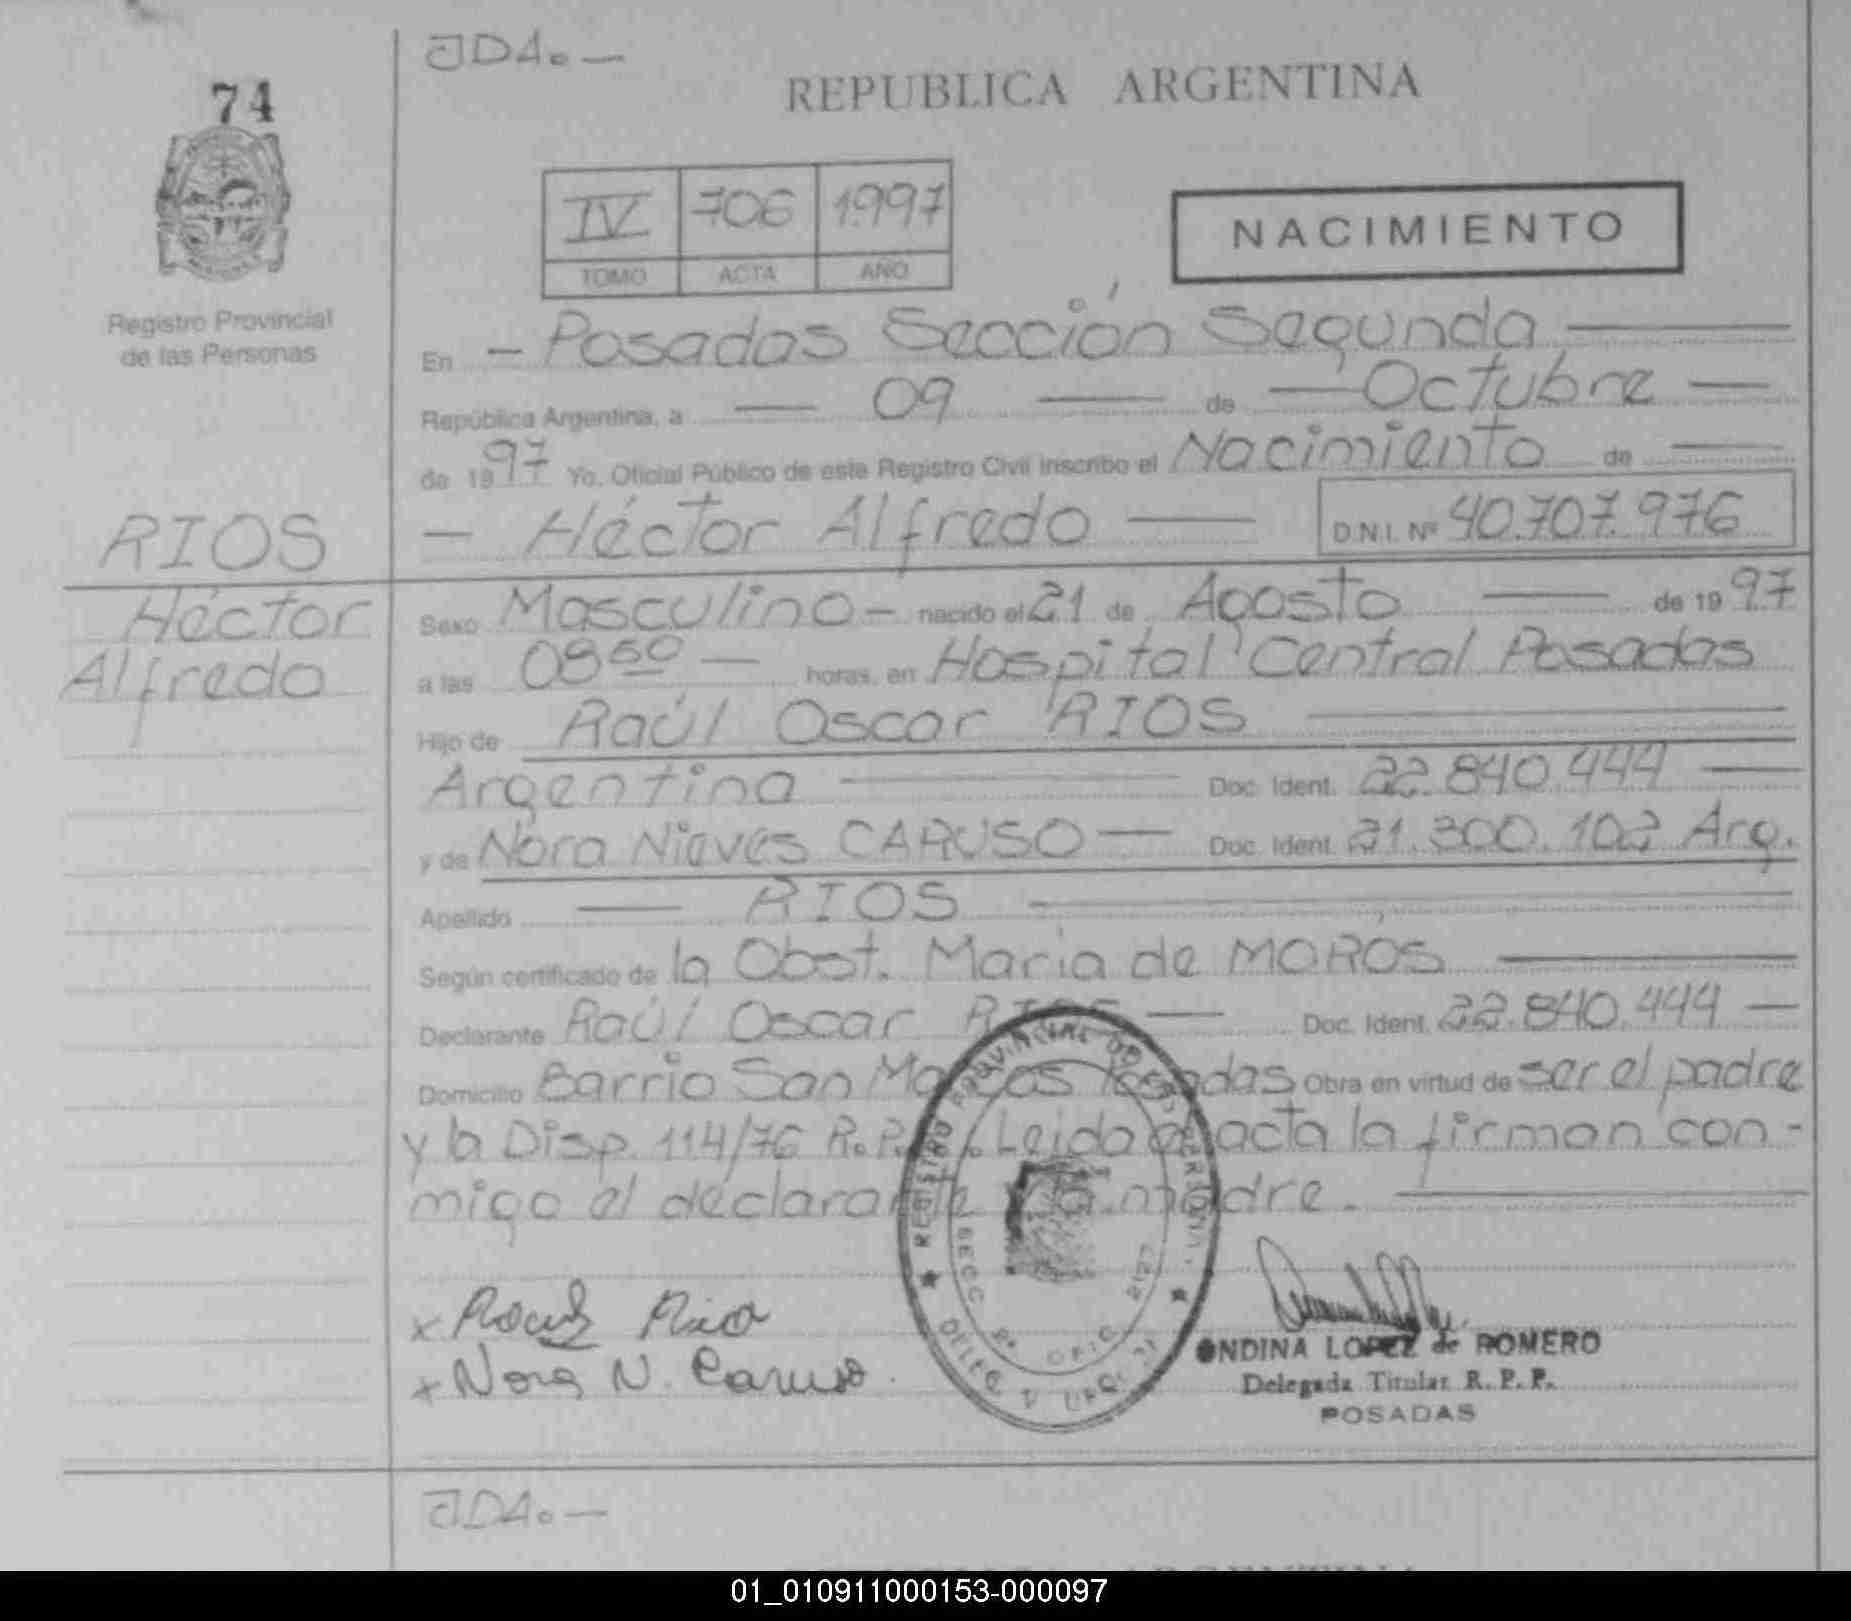 JDA.—
74
REPUBLICA ARGENTINA
IV 706 1997
TOMO ACTA AÑO
NACIMIENTO
Registro Provincial
de las Personas
En — Posadas Sección Segunda —
República Argentina, a — 09 — de — Octubre —
de 1997 Yo, Oficial Público de este Registro Civil inscribo el Nacimiento de —
RIOS — Héctor Alfredo — D.N.I. Nº 40.707.976
Héctor Sexo Masculino — nacido el 21 de Agosto — de 1997
Alfredo a las 08 50 — horas, en Hospital Central Posadas
Hijo de Raúl Oscar RIOS —
Argentina — Doc. Ident. 22.840.444 —
y de Nora Nieves CARUSO — Doc. Ident. 21.300.102 Arg.
Apellido — RIOS —
Según certificado de la Obst. María de MOROS —
Declarante Raúl Oscar RIOS — Doc. Ident. 22.840.444 —
Domicilio Barrio San Marcos Posadas Obra en virtud de ser el padre
y la Disp. 114/76 R.P. Leido el acta la firman con-
migo el declarante y la madre. —
REGISTRO PROVINCIAL DE LAS PERSONAS
SECC 2ª OFIC 2127
x Raul Rios
x Nora N. Caruso.
ONDINA LOPEZ de ROMERO
Delegada Titular R. P. P.
POSADAS
JDA.—
01_010911000153-000097